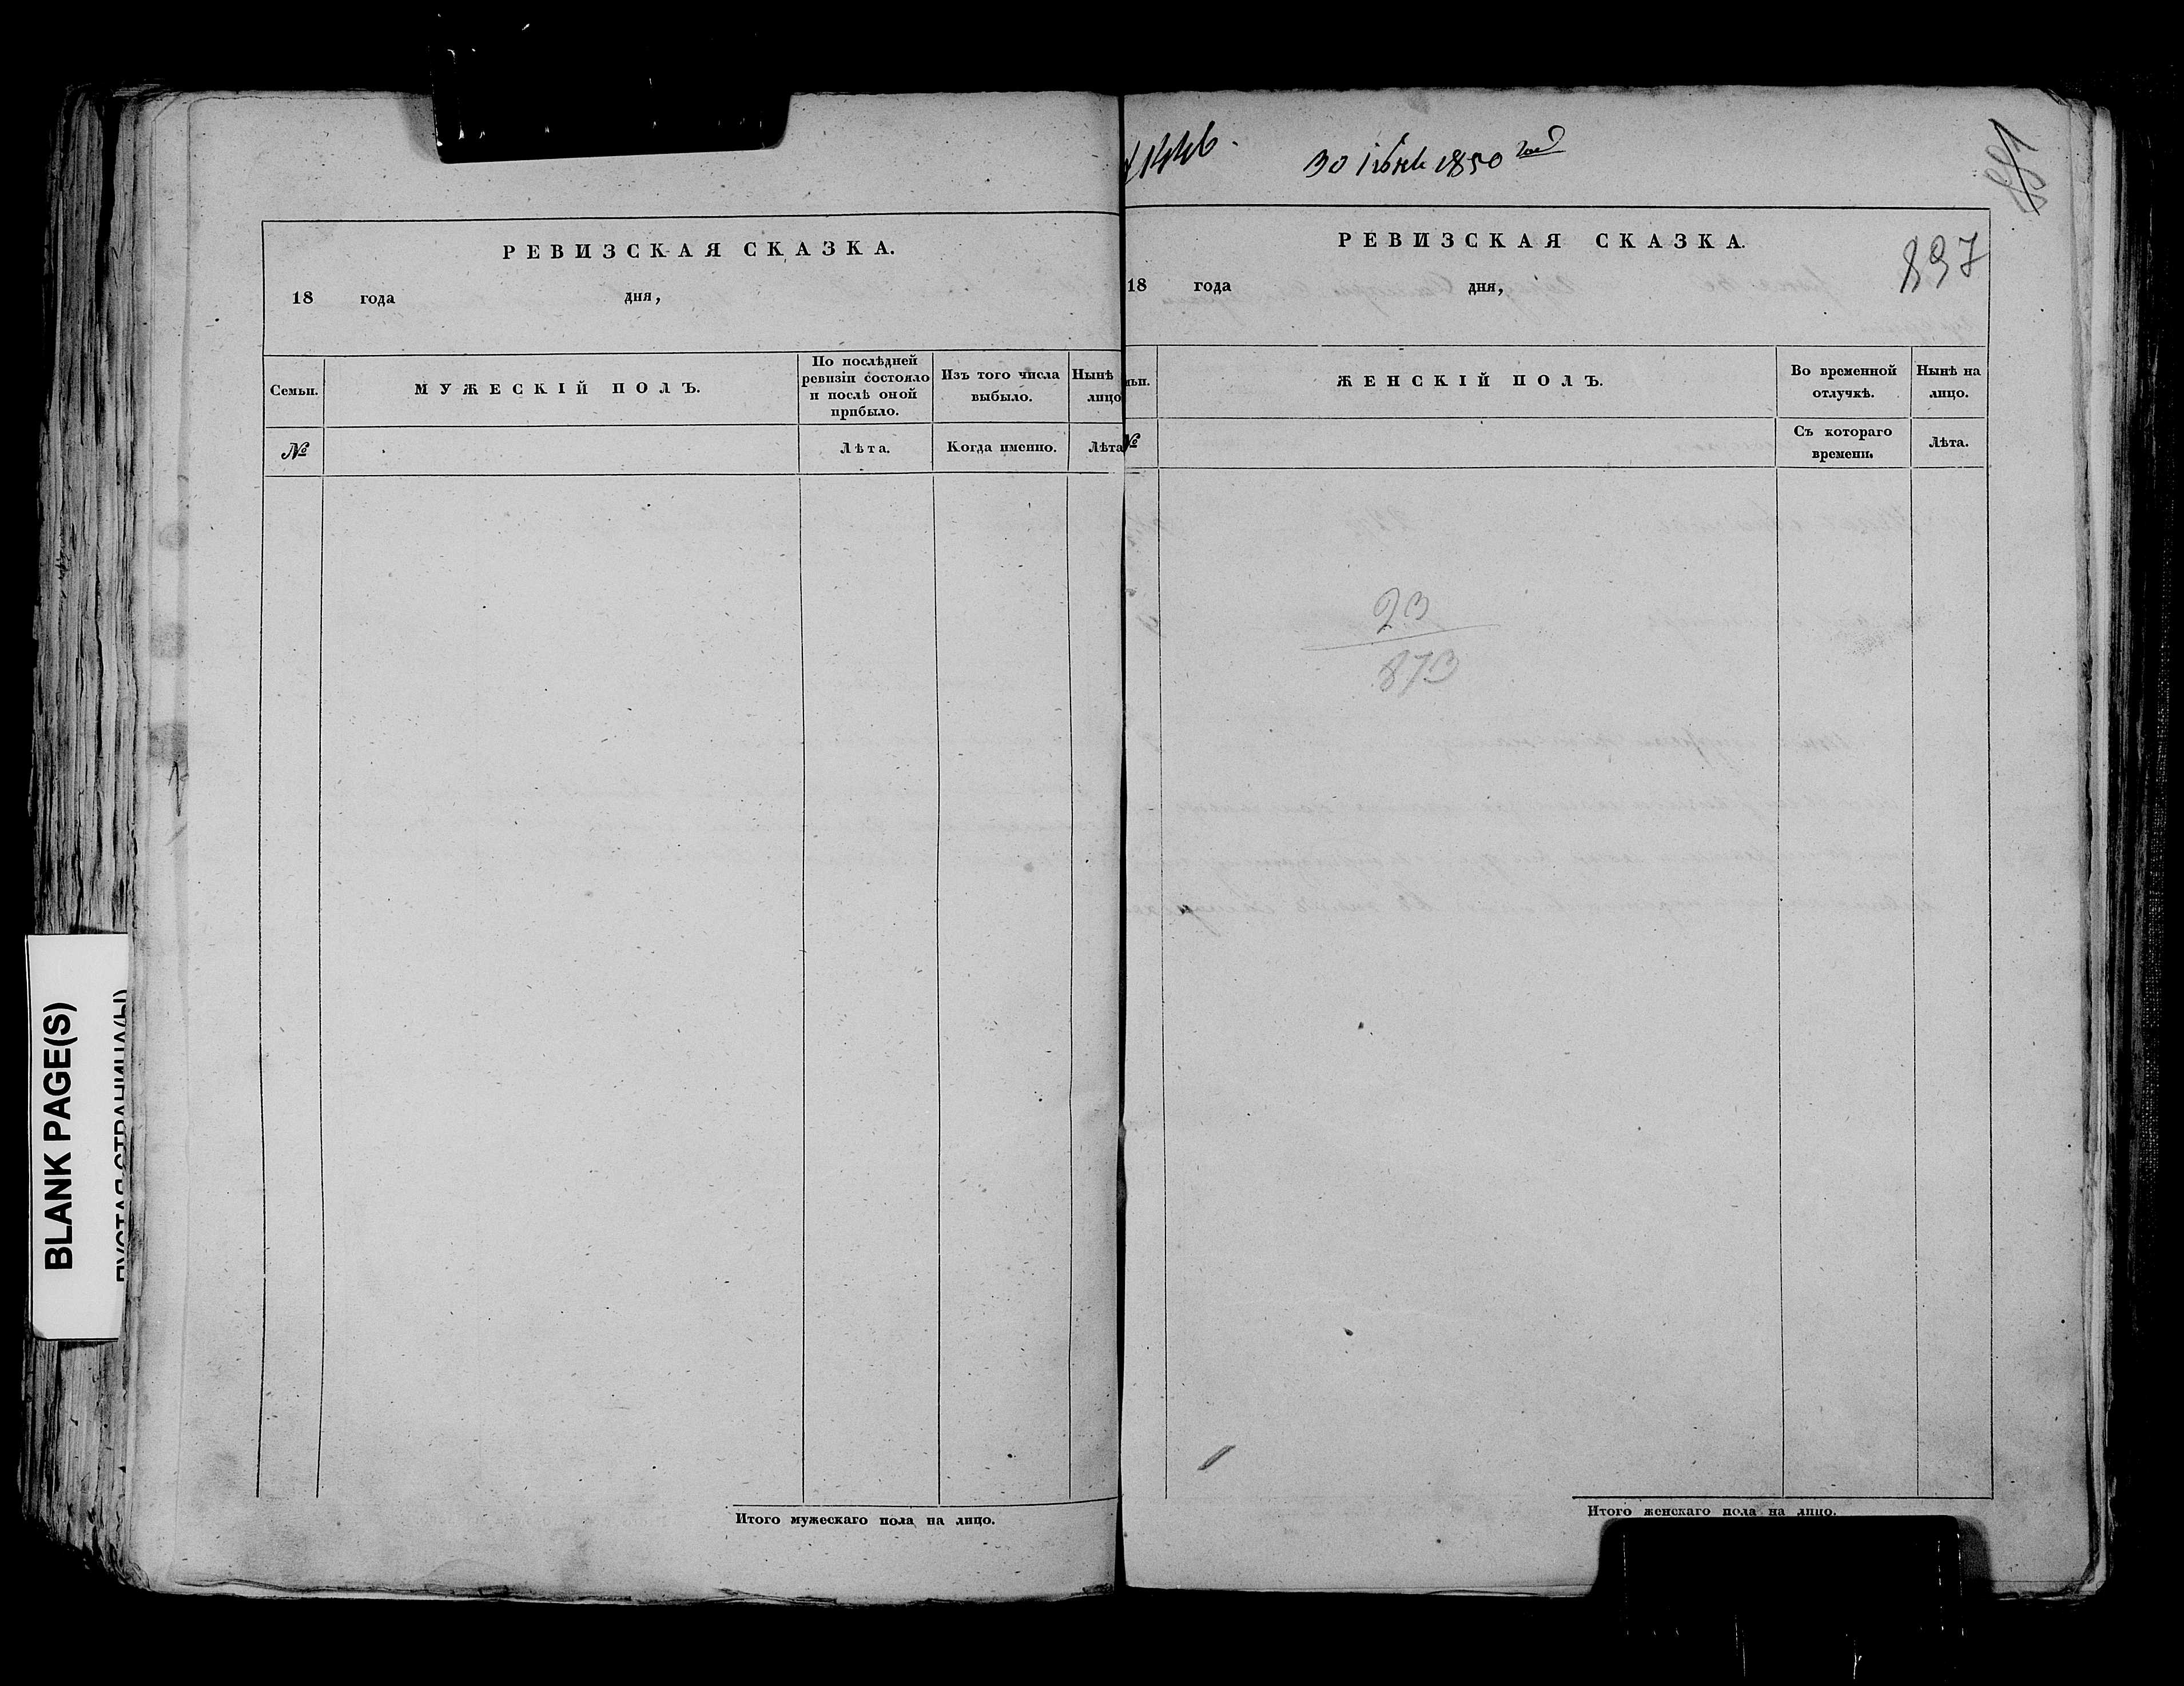 РЕВИЗСКАЯ СКАЗКА.
18 года дня,
Семьи.
МУЖЕСКІЙ ПОЛЪ.
По послѣдней
ревизіи состояло
и послѣ оной
прибыло.
Изъ того числа
выбыло.
Нынѣ
лицо
№
Лѣта.
Когда именно.
Лѣта
Итого мужескаго пола на лицо.
1446.
30 Іюня 1850 года
897
РЕВИЗСКАЯ СКАЗКА.
18 года дня,
ЖЕНСКІЙ ПОЛЪ.
Во временной
отлучкѣ.
Нынѣ на
лицо.
№
Съ котораго
времени.
Лѣта.
23
873
Итого женскаго пола на лицо.
BLANK PAGE(S)